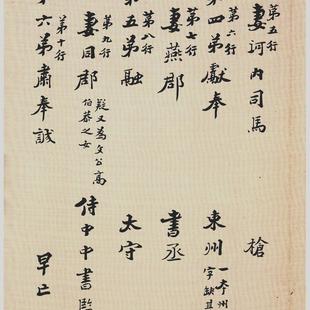 第五行
妻河内司馬　槍
第六行
第四弟獻奉　東州　一本州
字缺其
第七行
妻燕郡　書丞
第八行
第五弟融　太守
第九行
妻同郡　疑又為文公高
伯恭之女　侍中中書監
第十行
六弟肅奉誠　早亡